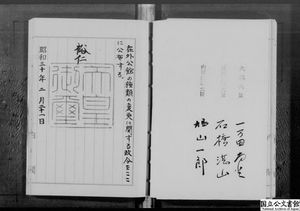 在外公館の種類の変更に関する政令をここ
に公布する。
裕仁
天皇
御璽
昭和三十年二月廿一日
一万田尚登
石橋湛山
鳩山一郎
国立公文書館
National Archives of Japan